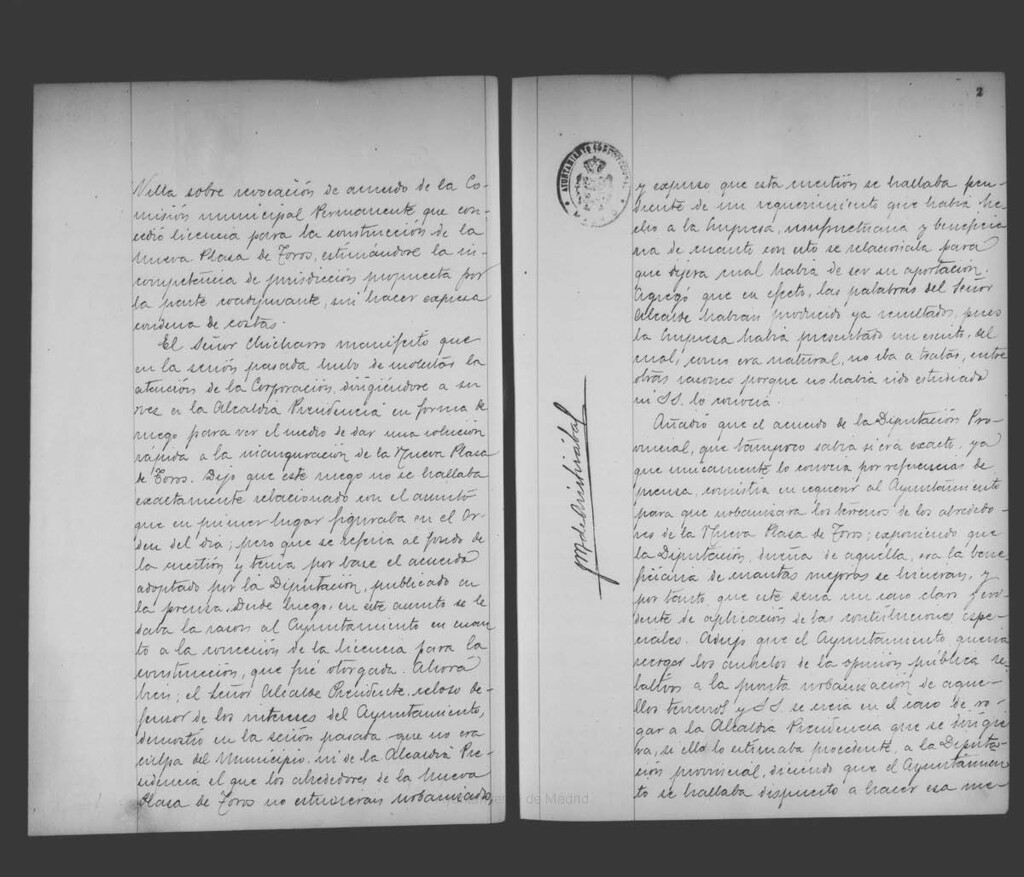 Villa sobre revocación de acuerdo de la Co-
misión municipal Permanente que con-
cedió licencia para la construcción de la
Nueva Plaza de Toros, estimándose la in-
competencia de jurisdicción propuesta por
la parte coadyuvante, sin hacer expresa
condena de costas.
El Señor Chicharro manifestó que
en la sesión pasada hubo de molestar la
atención de la Corporación, dirigiéndose a su
vez a la Alcaldía Presidencia en forma de
ruego para ver el medio de dar una solución
rápida a la inauguración de la Nueva Plaza
de Toros. Dijo que este ruego no se hallaba
exactamente relacionado con el asunto
que en primer lugar figuraba en el Or-
den del día; pero que se refería al fondo de
la cuestión y tenía por base el acuerdo
adoptado por la Diputación, publicado en
la prensa. Desde luego, en este asunto se le
daba la razón al Ayuntamiento en cuan-
to a la concesión de la licencia para la
construcción, que fué otorgada. Ahora
bien; el Señor Alcalde Presidente, celoso de-
fensor de los intereses del Ayuntamiento,
demostró en la sesión pasada que no era
culpa del Municipio ni de la Alcaldía Pre-
sidencia el que los alrededores de la Nueva
Plaza de Toros no estuvieran urbanizados,
de Madrid
2
AYUNTAMIENTO CONSTITUCIONAL
y expuso que esta cuestión se hallaba pen-
diente de un requerimiento que había he-
cho a la Empresa, usufructuaria y beneficia-
ria de cuanto con esto se relacionaba para
que dijera cual había de ser su aportación.
Agregó que en efecto, las palabras del Señor
Alcalde habían producido ya resultados, pues
la Empresa había presentado un escrito, del
cual, como era natural, no iba a tratar, entre
otras razones porque no había sido estudiado
ni S.S. lo conocía.
Añadió que el acuerdo de la Diputación Pro-
vincial, que tampoco sabía si era exacto, ya
que unicamente lo conocía por referencias de
prensa, consistía en requerir al Ayuntamiento
para que urbanizara los terrenos de los alrededo-
res de la Nueva Plaza de Toros; exponiendo que
la Diputación, dueña de aquélla, era la bene-
ficiaria de cuantas mejoras se hicieran, y
por tanto que este sería un caso claro y
de aplicación de las contribuciones espe-
ciales. Adujo que el Ayuntamiento quería
recoger los anhelos de la opinión pública re-
lativos a la pronta urbanización de aque-
llos terrenos y S.S. se creía en el caso de ro-
gar a la Alcaldía Presidencia que se dirigie-
ra, si ello lo estimaba procedente, a la Diputa-
ción provincial, diciendo que el Ayuntamien-
to se hallaba dispuesto a hacer esa me-